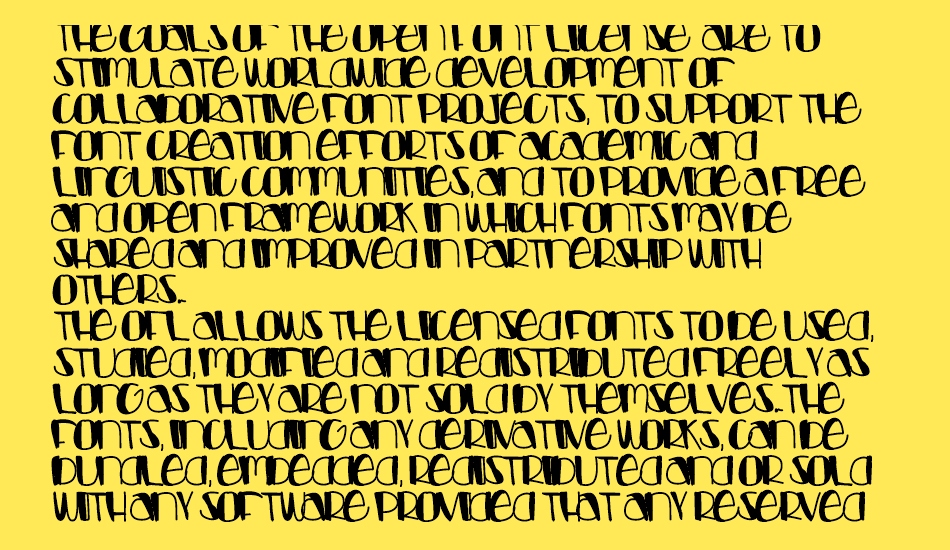 THE GOALS OF THE OPEN FONT LICENSE ARE TO
STIMULATE WORLDWIDE DEVELOPMENT OF
COLLABORATIVE FONT PROJECTS, TO SUPPORT THE
FONT CREATION EFFORTS OF ACADEMIC AND
LINGUISTIC COMMUNITIES, AND TO PROVIDE A FREE
AND OPEN FRAMEWORK IN WHICH FONTS MAY BE
SHARED AND IMPROVED IN PARTNERSHIP WITH
OTHERS.
THE OFL ALLOWS THE LICENSED FONTS TO BE USED,
STUDIED, MODIFIED AND REDISTRIBUTED FREELY AS
LONG AS THEY ARE NOT SOLD BY THEMSELVES. THE
FONTS, INCLUDING ANY DERIVATIVE WORKS, CAN BE
BUNDLED, EMBEDDED, REDISTRIBUTED AND OR SOLD
WITH ANY SOFTWARE PROVIDED THAT ANY RESERVED